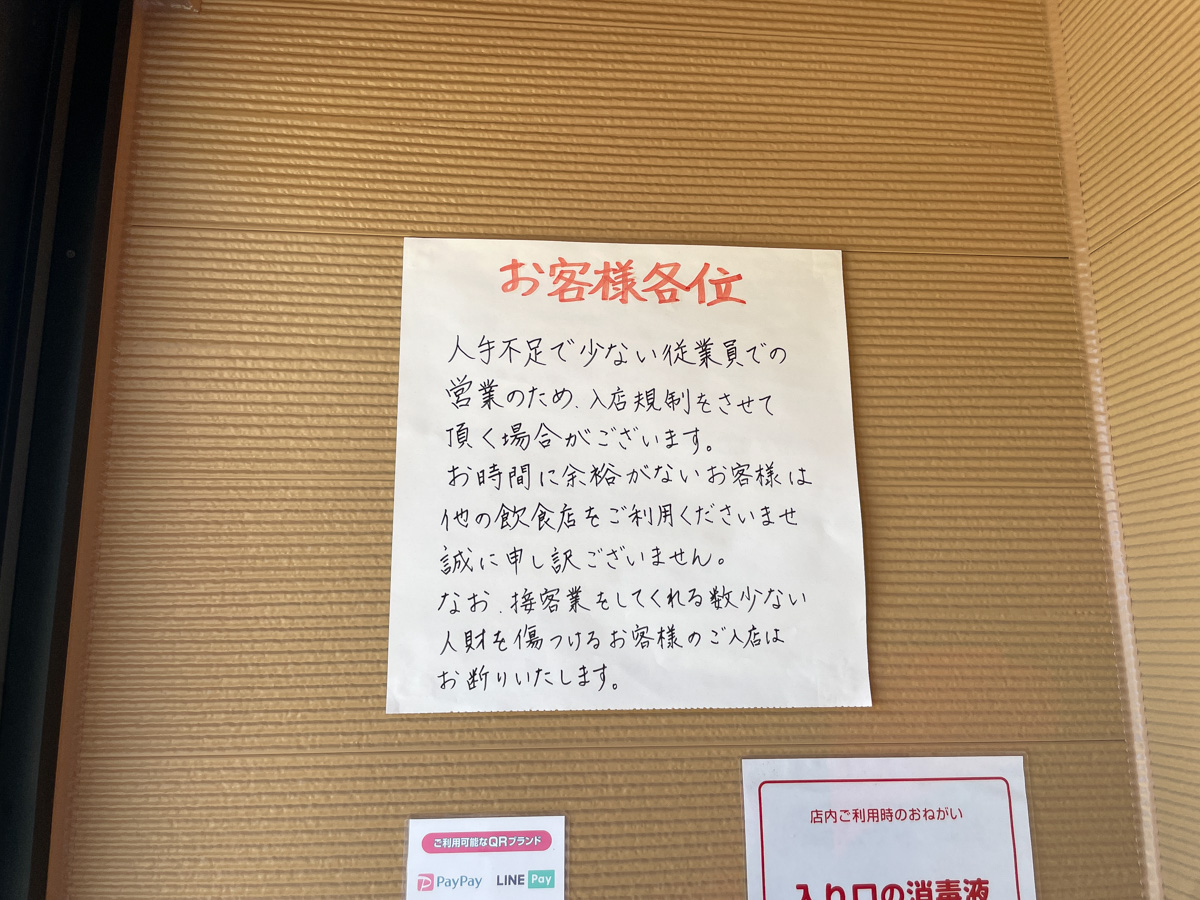 お客様各位
人手不足で少ない従業員での
営業のため、入店規制をさせて
頂く場合がございます。
お時間に余裕がないお客様は
他の飲食店をご利用くださいませ
誠に申し訳ございません。
なお、接客業をしてくれる数少ない
人財を傷つけるお客様のご入店は
お断りいたします。
ご利用可能なQRブランド
PayPay LINE Pay
店内ご利用時のおねがい
入り口の消毒液